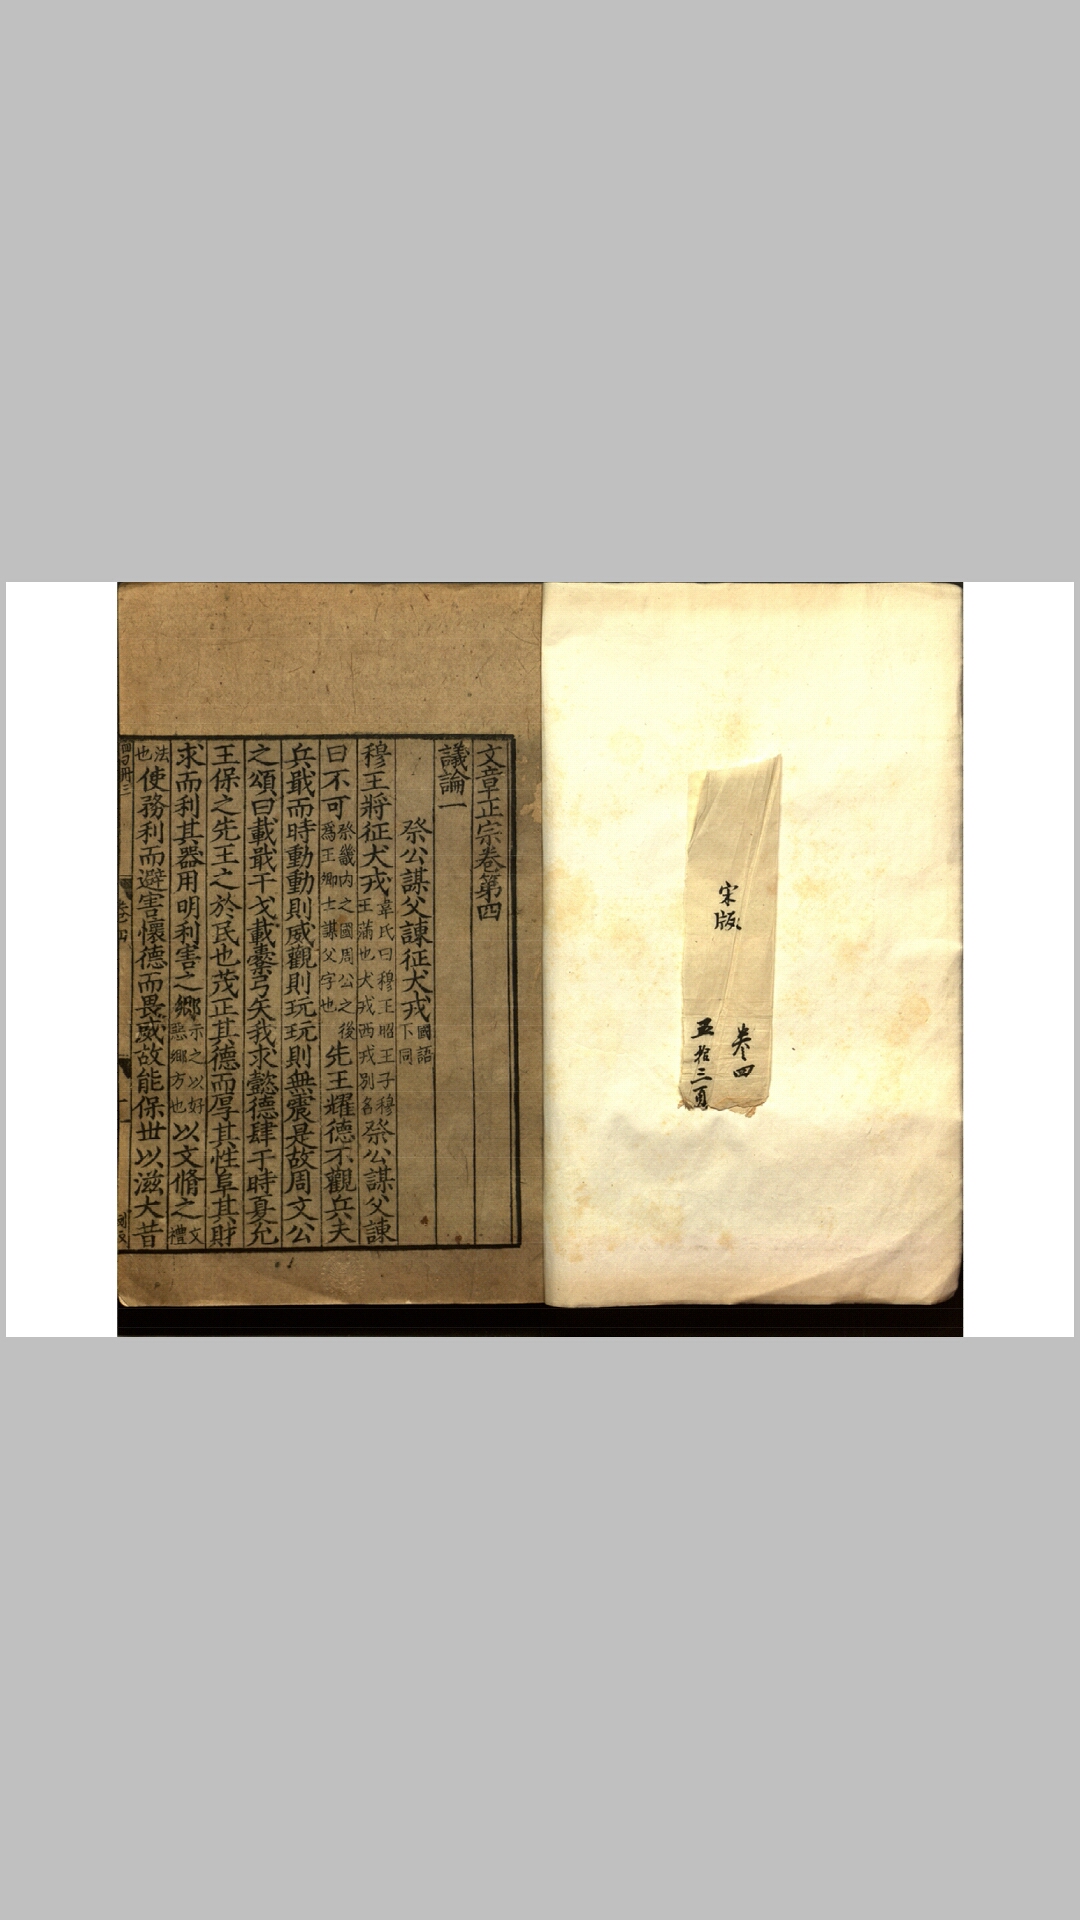 宋版
卷四
五拾三頁
文章正宗卷第四
議論一
祭公謀父諫征犬戎國語下同
穆王將征犬戎韋氏曰穆王昭王子穆王蒲也犬戎西戎別名祭公謀父諫
曰不可祭畿内之國周公之後爲王卿士謀父字也先王耀德不觀兵夫
兵戢而時動動則威觀則玩玩則無震是故周文公
之頌曰載戢干戈載櫜弓矢我求懿德肆于時夏允
王保之先王之於民也茂正其德而厚其性阜其財
求而利其器用明利害之鄉示之以好惡鄉方也以文脩之文禮
法也使務利而避害懷德而畏威故能保丗以滋大昔
卷四